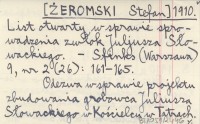 [ŻEROMSKI Stefan] 1910.
List otwarty w sprawie spro-
wadzenia zwłok Juljusza Sło-
wackiego. - Sfinks (Warszawa)
9, nr 2 (26): 161-165.
Odezwa w sprawie projektu
zbudowania grobowca Juljusza
Słowackiego w Kościelcu w Tatrach.